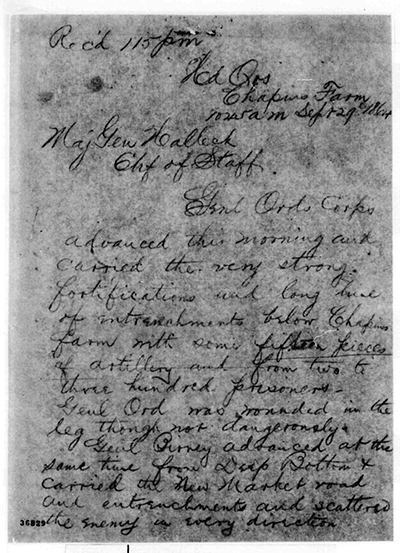 Rec'd 115 pm
Hd Qrs
Chapins Farm
1045 a m Sept 29. 1864
Maj Gen Halleck
Chf of Staff.
Genl Ords Corps
advanced this morning and
carried the very strong
fortifications and long line
of entrenchments below Chapins
farm with some fifteen pieces
of artillery and from two to
three hundred prisoners -
Genl Ord was wounded in the
leg though not dangerously.
Genl Birney advanced at the
same time from Deep Bottom &
carried the New Market road
and entrenchments and scattered
the enemy in every direction
36829